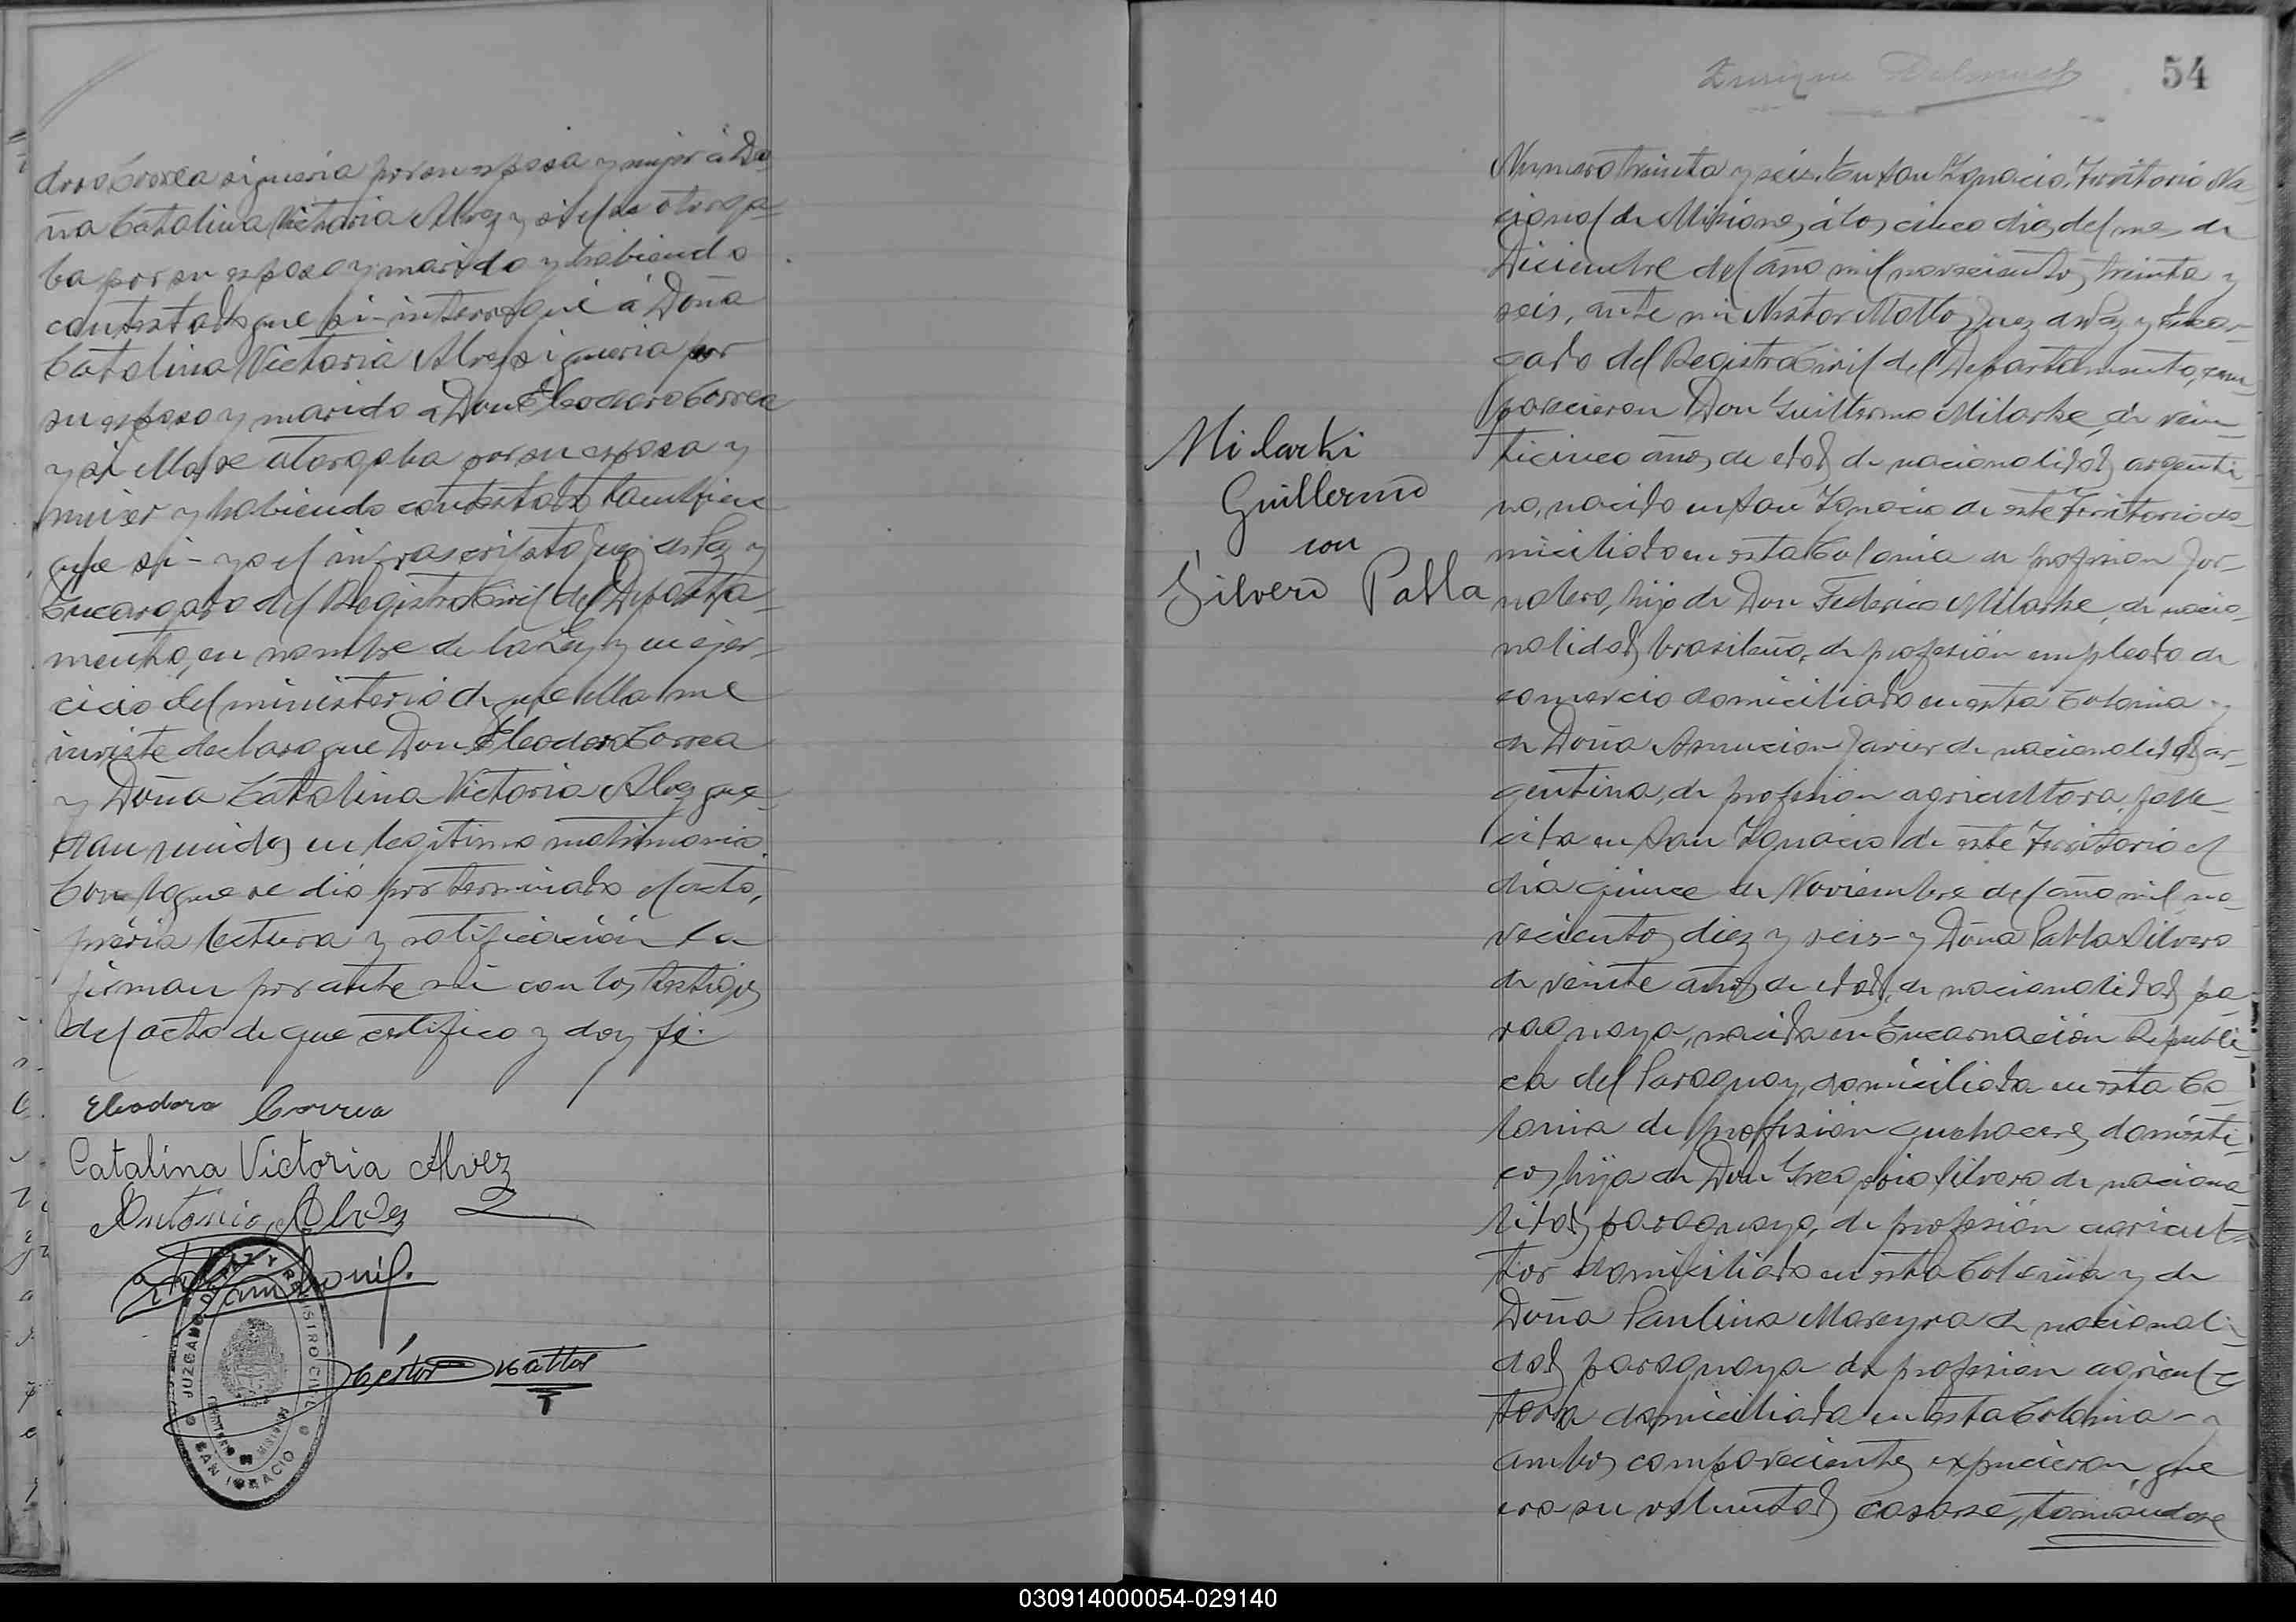 doro Correa si queria por su esposa y mujer á Do-
ña Catalina Victoria Alvez y si el se otorga-
ba por su esposo y marido y habiendo
contestado que si - interrogué á Doña
Catalina Victoria Alvez si queria por
su esposo y marido a Don Eleodoro Correa
y si ella se otorgaba por su esposa y
mujer y habiendo contestado tambien
que si - yo el infrascripto Juez de Paz y
Encargado del Registro Civil del Departa-
mento, en nombre de la Ley y en ejer-
cicio del ministerio de que ella me
inviste declaro que Don Eleodoro Correa
y Doña Catalina Victoria Alvez que-
dan unidos en legitimo matrimonio.
Con lo que se dió por terminado el acto,
prévia lectura y ratificación la
firman por ante mi con los testigos
del acto de que certifico y doy fé.
Eleodoro Correa
Catalina Victoria Alvez
Antonio Alvez
Néstor Mattos
JUZGADO DE PAZ Y REGISTRO CIVIL
TERRITORIO DE MISIONES
SAN IGNACIO
Enrique
54
Milarki
Guillermo
con
Silvero Pabla
Numero treinta y seis. En San Ignacio, Territorio Na-
cional de Misiones, á los cinco dias del mes de
Diciembre del año mil novecientos treinta y
seis, ante mi Nestor Motto Juez de Paz y Encar-
gado del Registro Civil del Departamento, com-
parecieron Don Guillermo Milarke, de vein-
ticinco años de edad, de nacionalidad argenti-
no, nacido en San Ignacio de este Territorio do-
miciliado en esta Colonia de profesion jor-
nalero, hijo de Don Federico Milarke, de nacio-
nalidad brasileño, de profesión empleado de
comercio domiciliado en esta Colonia y
de Doña Asuncion Javier de nacionalidad ar-
gentina, de profesión agricultora, falle-
cida en San Ignacio de este Territorio el
dia quince de Noviembre del año mil no-
vecientos diez y seis - y Doña Pabla Silvero
de veinte años de edad, de nacionalidad pa-
raguaya, nacida en Encarnación Repúbli-
ca del Paraguay, domiciliada en esta Co-
lonia de profesión quehaceres domésti-
cos, hija de Don Gregorio Silvero de naciona-
lidad paraguayo, de profesión agricul-
tor domiciliado en esta Colonia y de
Doña Paulina Mareyra de nacionali-
dad paraguaya de profesion agricul-
tora domiciliada en esta Colonia - y
ambos comparecientes expucieron que
era su voluntad casarse, tomándose
030914000054-029140